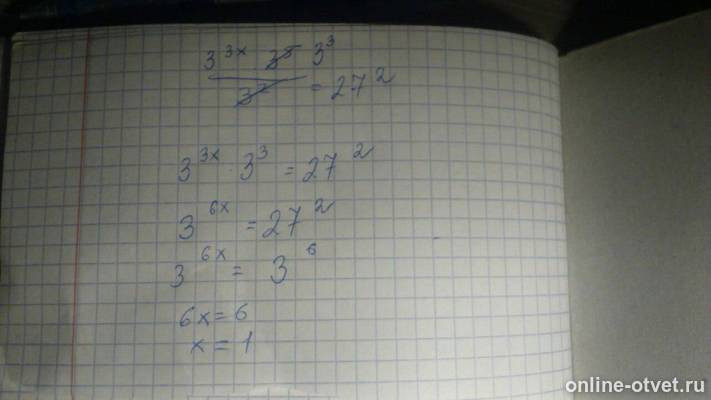 3^{3x} 3^5 3^3
3^2 = 27^2
3^{3x} · 3^3 = 27^2
3^{6x} = 27^2
3^{6x} = 3^6
6x = 6
x = 1
online-otvet.ru